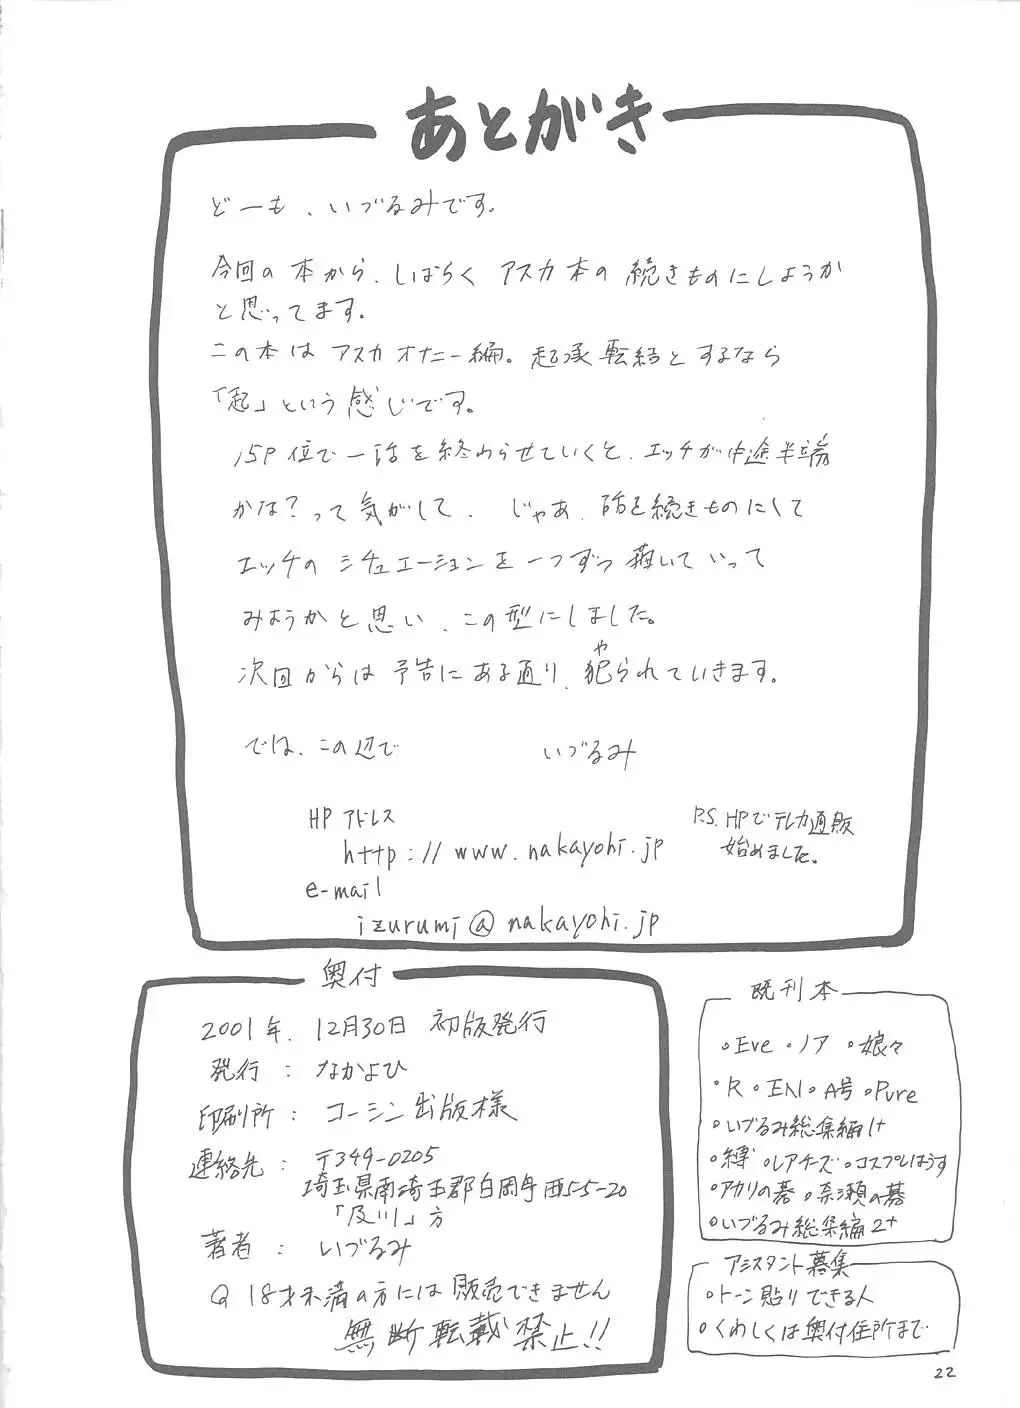 あとがき
どーも、いづるみです。
今回の本から、しばらく アスカ本の 続きものにしようか
と思ってます。
この本は アスカオナニー編。起承転結とするなら
「起」という感じです。
15P位で一話を終わらせていくと、エッチが中途半端
かな？って気がして、じゃあ、話を続きものにして
エッチの シチュエーションを一つずつ描いていって
みようかと思い、この型にしました。
次回からは予告にある通り、犯られていきます。
や
では、この辺で いづるみ
HPアドレス
http://www.nakayohi.jp
e-mail
izurumi@nakayohi.jp
P.S. HPでテレカ通販
始めました。
奥付
2001年、12月30日 初版発行
発行：なかよひ
印刷所：コーシン出版様
連絡先：〒349-0205
埼玉県南埼玉郡白岡町西5-5-20
「及川」方
著者：いづるみ
18才未満の方には販売できません
無断転載禁止!!
既刊本
○Eve ○ノア ○娘々
○R ○EN ○A号 ○Pure
○いづるみ総集編1+
○縛 ○レアチーズ ○コスプレはうす
○アカリの碁 ○奈瀬の碁
○いづるみ総集編2+
アシスタント募集
○トーン貼りできる人
○くわしくは奥付住所まで
22